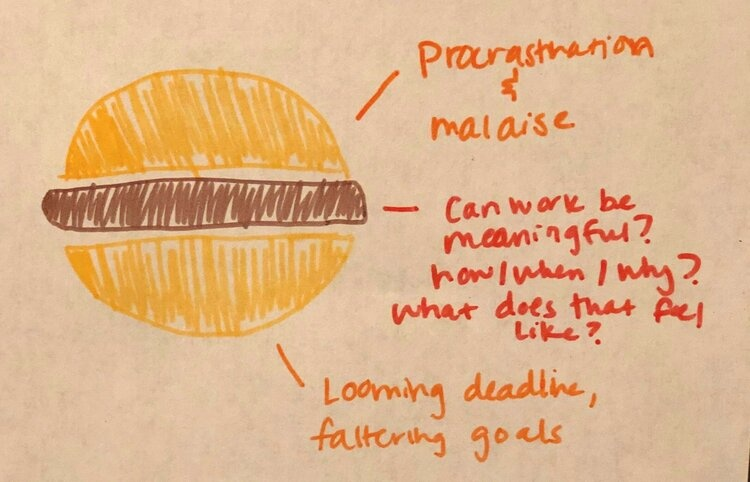 Procrastination
&
malaise
Can work be
meaningful?
how/when/why?
what does that feel
like?
Looming deadline,
faltering goals